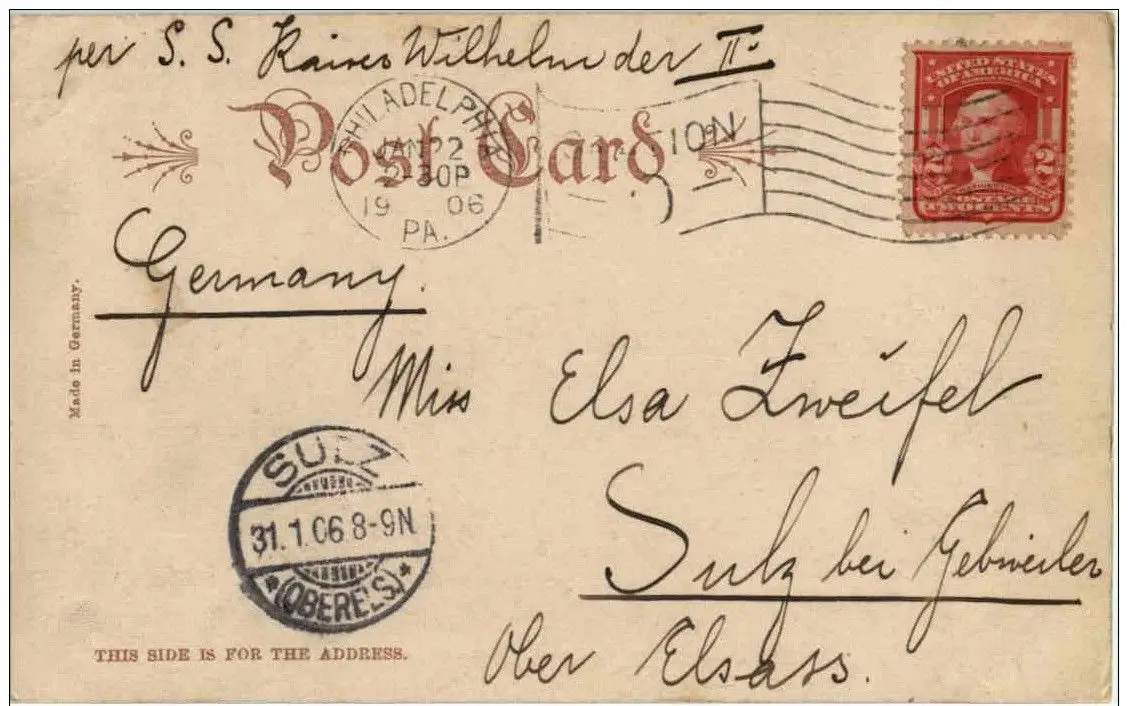 per S. S. Kaiser Wilhelm der II.
UNITED STATES
OF AMERICA
2 2
TWO CENTS
PHILADELPHIA
JAN 22
2-30P
1906
PA.
ION
Post Card
Germany.
Made in Germany.
Miss Elsa Zweifel
SULZ
31.1.06 8-9N
(OBERELS)
Sulz bei Gebweiler
Ober Elsass.
THIS SIDE IS FOR THE ADDRESS.